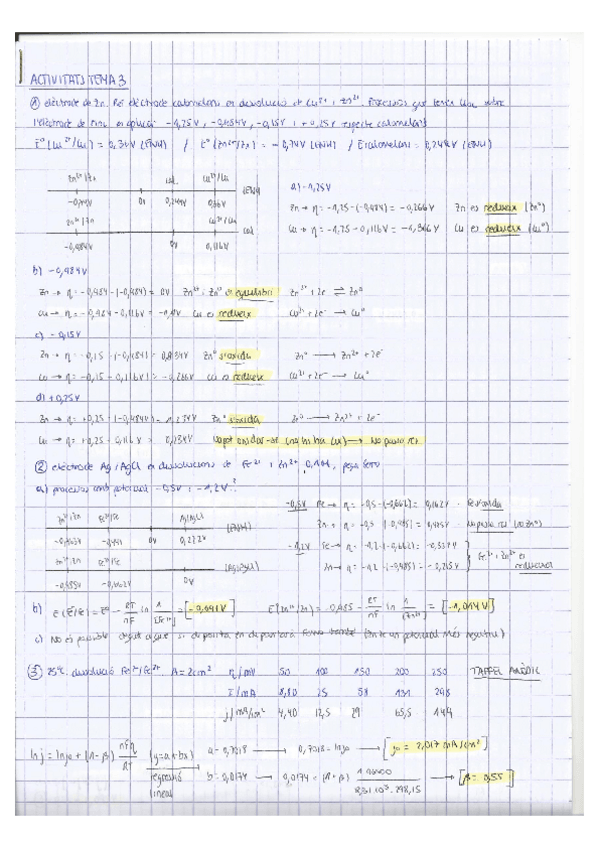 ACTIVITATS TEMA 3
① elèctrode de Zn. Ref elèctrode calomelans en dissolució de Cu²⁺ i Zn²⁺. Processos que tenen lloc sobre
l'elèctrode de zinc en aplicar -1,25V, -0,484V, -0,15V i +0,25V respecte calomelans
E°(Cu²⁺/Cu) = 0,34V (ENH) / E°(Zn²⁺/Zn) = -0,76V (ENH) / Ecalomelans = 0,244V (ENH)
Zn²⁺/Zn cal. Cu²⁺/Cu (ENH)
0V 0,244V
Zn²⁺/Zn Cu²⁺/Cu cal
-0,484V 0V 0,116V
a) -1,25V
Zn → η = -1,25-(-0,484) = -0,266V Zn es redueix (Zn⁰)
Cu → η = -1,25-0,116V = -1,366V Cu es redueix (Cu⁰)
b) -0,484V
Zn → η = -0,484-(-0,484) = 0V Zn²⁺ i Zn⁰ en equilibri Zn²⁺ + 2e⁻ ⇌ Zn⁰
Cu → η = -0,484-0,116V = Cu es redueix Cu²⁺ + 2e⁻ → Cu⁰
c) -0,15V
Zn → η = -0,15-(-0,484) = 0,334V Zn⁰ s'oxida Zn⁰ → Zn²⁺ + 2e⁻
Cu → η = -0,15-0,116V = -0,266V Cu es redueix Cu²⁺ + 2e⁻ → Cu⁰
d) +0,25V
Zn → η = +0,25-(-0,484V) = Zn⁰ s'oxida Zn⁰ → Zn²⁺ + 2e⁻
Cu → η = +0,25-0,116V = 0,134V No pot oxidar-se (no hi ha Cu) → No passa res
② elèctrode Ag/AgCl en dissolucions de Fe²⁺ i Zn²⁺ 0,1M, peça ferro
a) processos amb potencial -0,5V i -1,2V?
Zn²⁺/Zn Fe²⁺/Fe Ag/AgCl (ENH)
-0,441 0V 0,222V
Zn²⁺/Zn Fe²⁺/Fe (Ag/AgCl)
-0,985V -0,662V 0V
-0,5V Fe → η = -0,5-(-0,662) = 0,162V Fe s'oxida
Zn → η = -0,5-(-0,985) = 0,485V No passa res (no Zn⁰)
-1,2V Fe → η = -1,2-(-0,662) =
Zn → η = -1,2-(-0,985) = -0,215V
Fe²⁺ i Zn²⁺ es redueixen
b) E(Fe²⁺/Fe) = E° - RT/nF ln 1/[Fe²⁺] = E(Zn²⁺/Zn) = -0,985 - RT/nF ln 1/[Zn²⁺] = [-1,014V]
③ 25°C. dissolució Fe³⁺/Fe²⁺. A = 2cm² η/mV 50 100 150 200 250 TAFFEL ANÒDIC
I/mA 8,80 25 58 131 298
j/mA/cm² 4,40 12,5 29 65,5 149
ln j = ln j₀ + (1-β) nFη/RT (y = a+bx) a = 0,7018 → 0,7018 = ln j₀ → [j₀ = 2,017 mA/cm²]
regressió lineal b = 0,0174 → 0,0174 = (1-β) 1·96500/8,31·10³·298,15 → [β = 0,55]